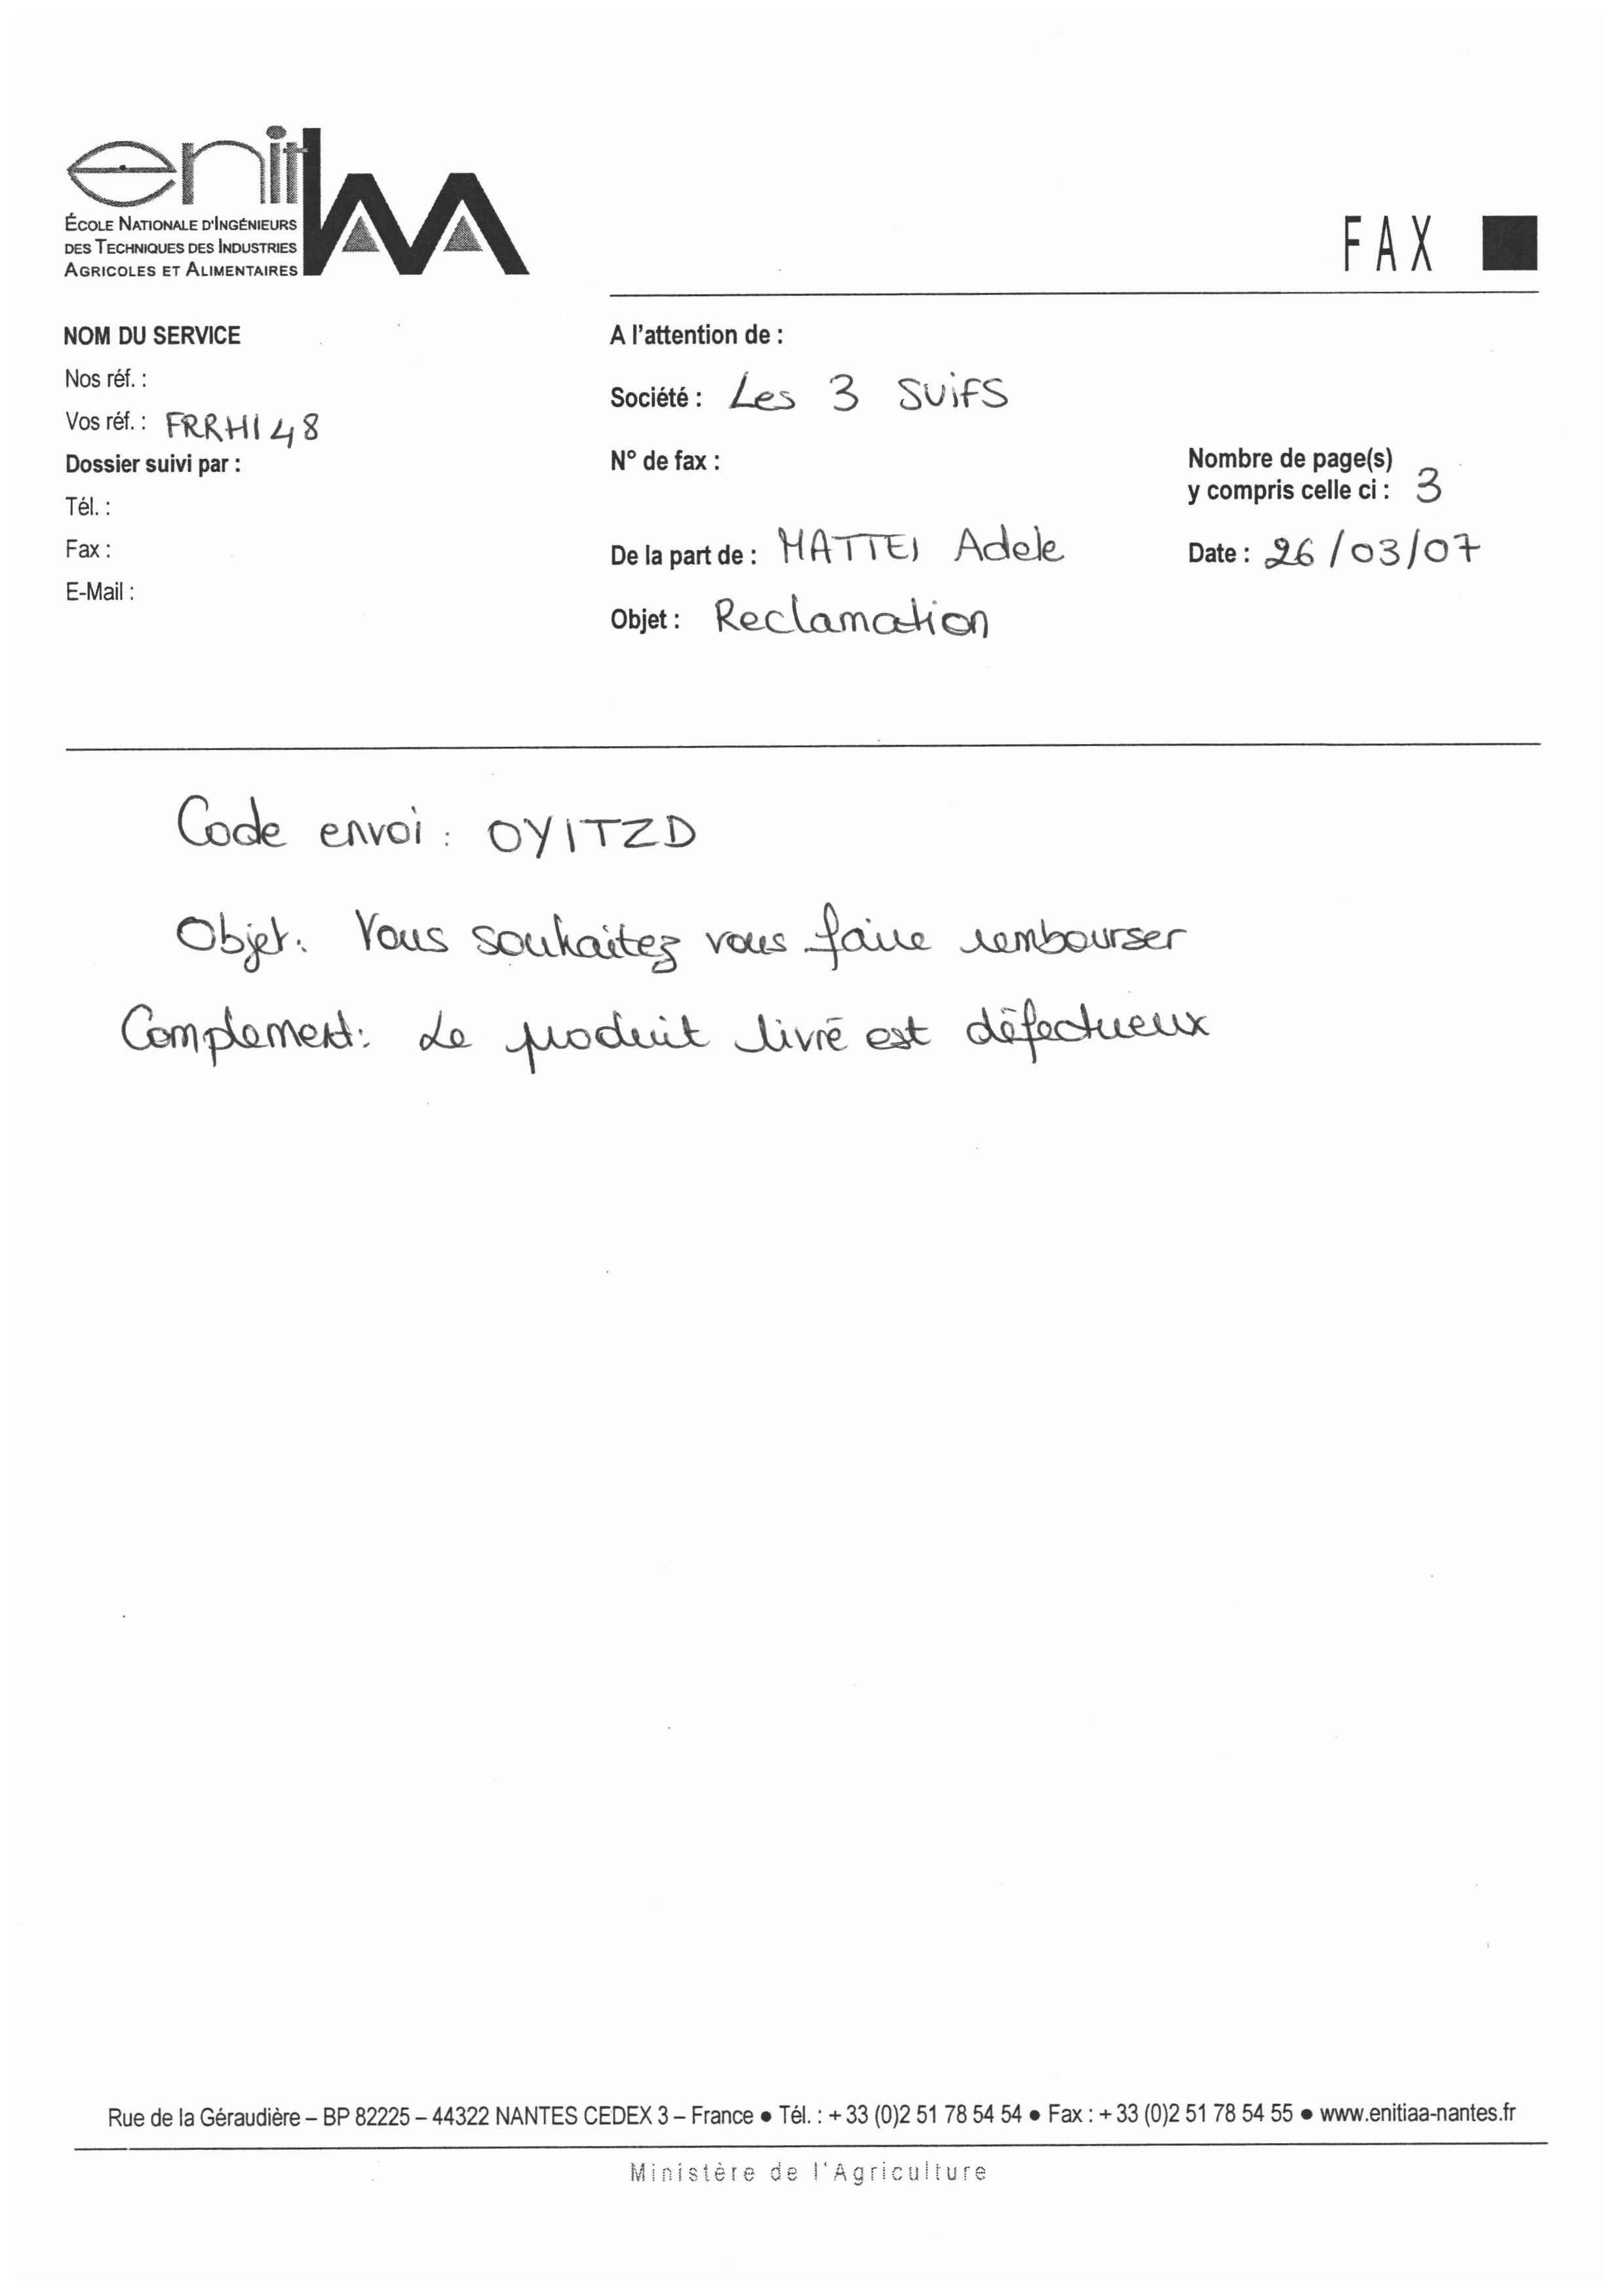 enitiAA
ÉCOLE NATIONALE D'INGÉNIEURS
DES TECHNIQUES DES INDUSTRIES
AGRICOLES ET ALIMENTAIRES
FAX
NOM DU SERVICE
Nos réf. :
Vos réf. : FRRHI48
Dossier suivi par :
Tél. :
Fax :
E-Mail :
A l'attention de :
Société : Les 3 SUifS
N° de fax :
Nombre de page(s)
y compris celle ci : 3
De la part de : MATTEI Adele
Date : 26/03/07
Objet : Reclamation
Code envoi : OYITZD
Objet : Vous souhaitez vous faire rembourser
Complement : Le produit livré est défectueux
Rue de la Géraudière – BP 82225 – 44322 NANTES CEDEX 3 – France ● Tél. : + 33 (0)2 51 78 54 54 ● Fax : + 33 (0)2 51 78 54 55 ● www.enitiaa-nantes.fr
Ministère de l'Agriculture